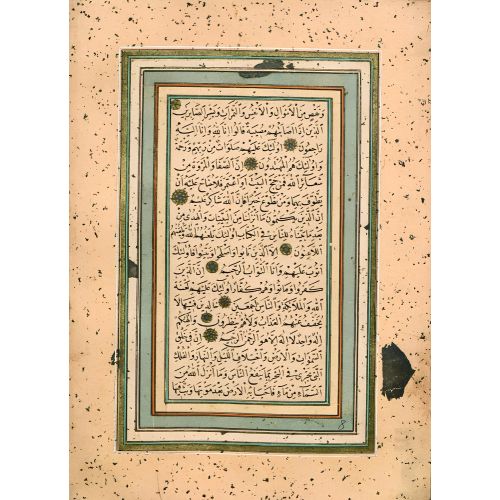 وَنَقْصٍ مِنَ الْأَمْوَالِ وَالْأَنْفُسِ وَالثَّمَرَاتِ وَبَشِّرِ الصَّابِرِينَ
الَّذِينَ إِذَا أَصَابَتْهُمْ مُصِيبَةٌ قَالُوا إِنَّا لِلَّهِ وَإِنَّا إِلَيْهِ
رَاجِعُونَ أُولَئِكَ عَلَيْهِمْ صَلَوَاتٌ مِنْ رَبِّهِمْ وَرَحْمَةٌ
وَأُولَئِكَ هُمُ الْمُهْتَدُونَ إِنَّ الصَّفَا وَالْمَرْوَةَ مِنْ
شَعَائِرِ اللَّهِ فَمَنْ حَجَّ الْبَيْتَ أَوِ اعْتَمَرَ فَلَا جُنَاحَ عَلَيْهِ أَنْ
يَطَّوَّفَ بِهِمَا وَمَنْ تَطَوَّعَ خَيْرًا فَإِنَّ اللَّهَ شَاكِرٌ عَلِيمٌ
إِنَّ الَّذِينَ يَكْتُمُونَ مَا أَنْزَلْنَا مِنَ الْبَيِّنَاتِ وَالْهُدَى مِنْ
بَعْدِ مَا بَيَّنَّاهُ لِلنَّاسِ فِي الْكِتَابِ أُولَئِكَ يَلْعَنُهُمُ اللَّهُ وَيَلْعَنُهُمُ
اللَّاعِنُونَ إِلَّا الَّذِينَ تَابُوا وَأَصْلَحُوا وَبَيَّنُوا فَأُولَئِكَ
أَتُوبُ عَلَيْهِمْ وَأَنَا التَّوَّابُ الرَّحِيمُ إِنَّ الَّذِينَ
كَفَرُوا وَمَاتُوا وَهُمْ كُفَّارٌ أُولَئِكَ عَلَيْهِمْ لَعْنَةُ
اللَّهِ وَالْمَلَائِكَةِ وَالنَّاسِ أَجْمَعِينَ خَالِدِينَ فِيهَا لَا
يُخَفَّفُ عَنْهُمُ الْعَذَابُ وَلَا هُمْ يُنْظَرُونَ وَإِلَهُكُمْ
إِلَهٌ وَاحِدٌ لَا إِلَهَ إِلَّا هُوَ الرَّحْمَنُ الرَّحِيمُ إِنَّ فِي خَلْقِ
السَّمَوَاتِ وَالْأَرْضِ وَاخْتِلَافِ اللَّيْلِ وَالنَّهَارِ وَالْفُلْكِ
الَّتِي تَجْرِي فِي الْبَحْرِ بِمَا يَنْفَعُ النَّاسَ وَمَا أَنْزَلَ اللَّهُ مِنَ
السَّمَاءِ مِنْ مَاءٍ فَأَحْيَا بِهِ الْأَرْضَ بَعْدَ مَوْتِهَا وَبَثَّ فِيهَا
8